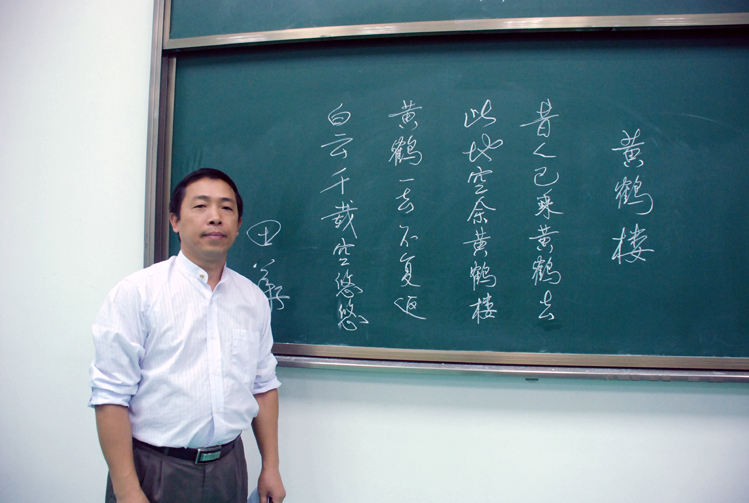 黄鹤楼
昔人已乘黄鹤去
此地空余黄鹤楼
黄鹤一去不复返
白云千载空悠悠